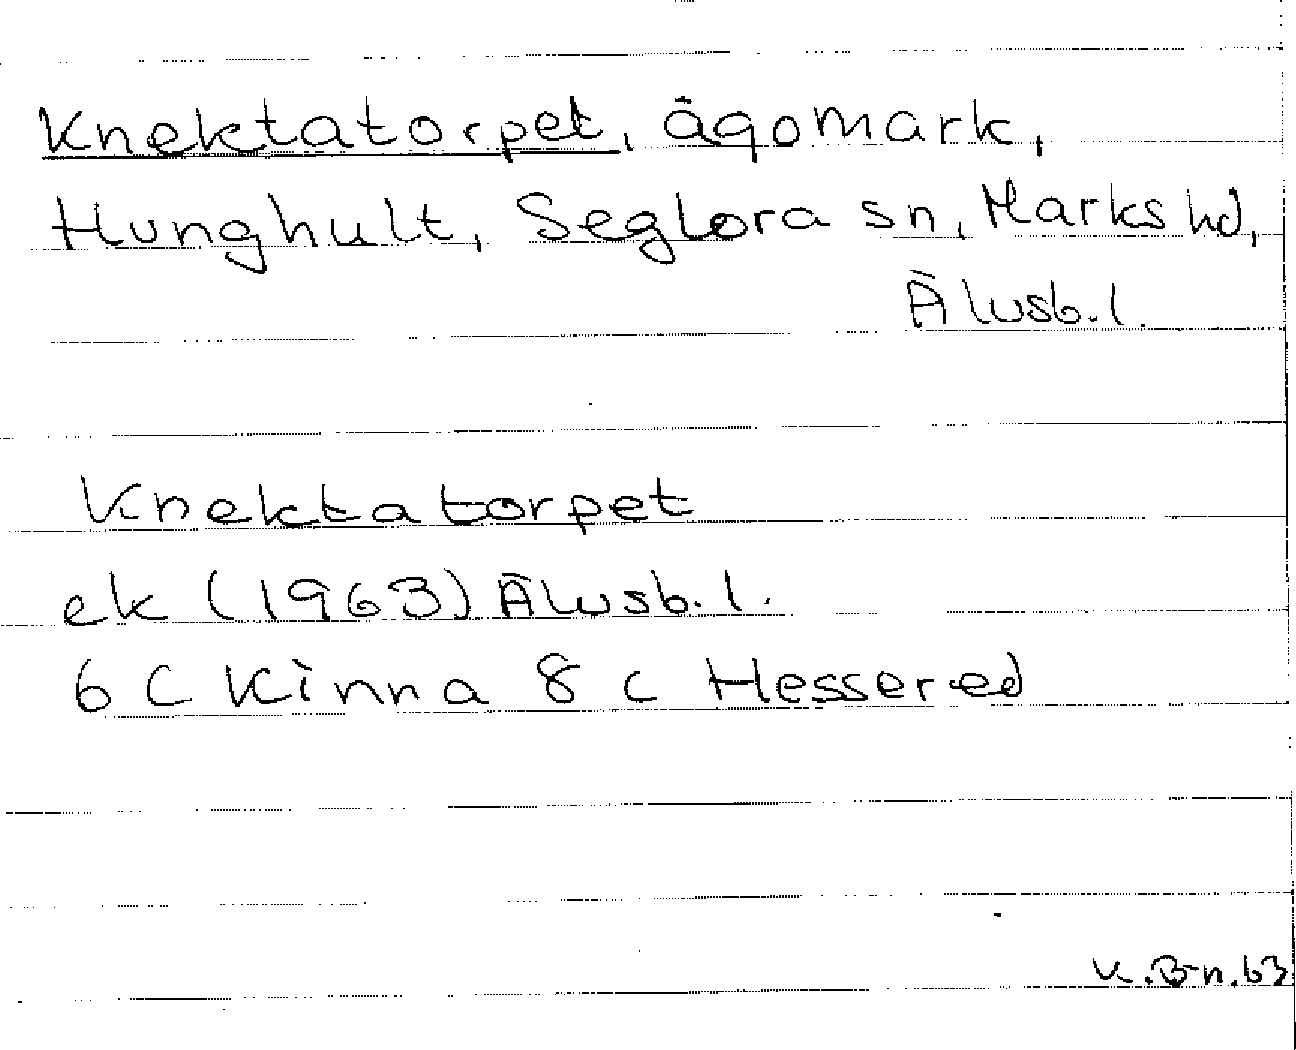 Knektatorpet, ägomark,
Hunghult, Seglora sn, Marks hd,
Älvsb. l.
Knektatorpet
ek (1963) Älvsb. l.
6 C Kinna 8 c Hessered
K. B-n. 63